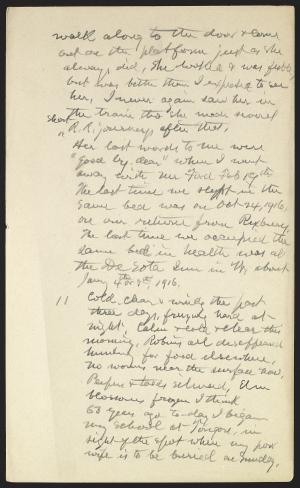 walk along to the door & come
out on the platform just as she
always did, She looked & was feeble,
but was better than I expected to see
her, I never again saw her in
the train tho' she made several
short "R.R. journeys after that.
Her last words to me were
"Good by, dear" when I went
away with Mr Ford Feb 19th
The last time we slept in the
same bed was on Oct 24, 1916,
on our return from Roxbury.
The last time we occupied the
same bed in health was at
the De Sota Inn in about
Jany 4th or 5th, 1916.
11 Cold, clear & windy the past
three days, freezing hard at
night; Calm & cold & clear this
morning, Robins all disappeared
hunting for food elsewhere,
no worms near the surface now,
Peepers & toads silenced, Elm
blossoms frozen I think
63 years ago to-day I began
my school at Tongore, in
sight of the spot where my poor
wife is to be buried on Sunday.